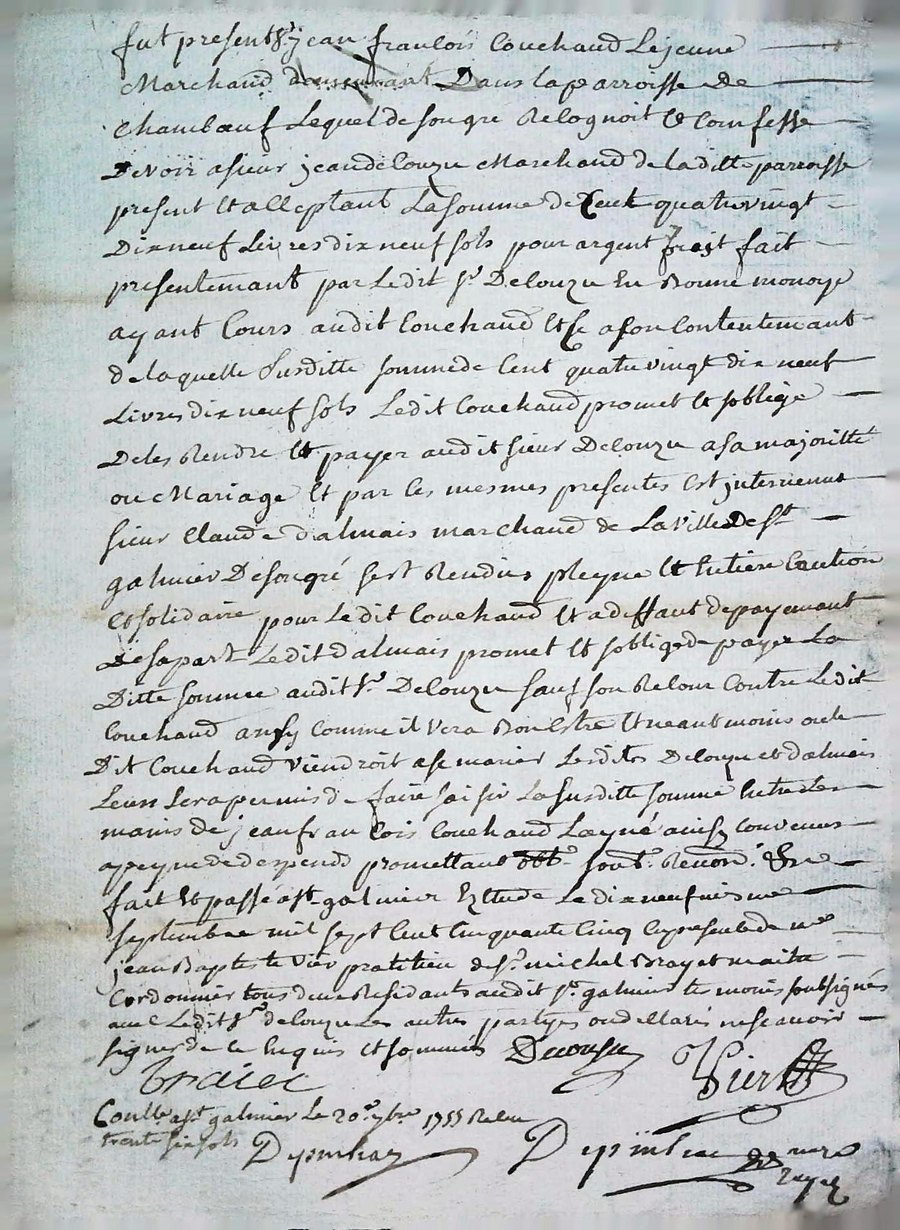 fut present Sr jean francois Couchaud Le jeune
Marchand demeurant Dans la parroisse De
Chambœuf Lequel de son gre Recognoit et Confesse
Devoir a sieur jean delouzu Marchand de laditte parroisse
present et acceptant La somme de Cent quatre vingt
Dix neuf Livres dix neuf sols pour argent prest fait
presentemant par Ledit Sr Delouzu En Bonne monoye
ayant Cours audit Couchaud et Ce a son Contentemant
de laquelle susditte somme de Cent quatre vingt dix neuf
Livres dix neuf sols Ledit Couchaud promet et soblige
De les Rendre et payer audit sieur Delouzu a sa majoritté
ou Mariage et par les mesmes presentes Est jntervenus
sieur Claude dalmais marchand de La Ville De St
galmier De son gré sest Rendus pleyge et Entiere Caution
et solidaire pour Ledit Couchaud et a deffaut de payemant
de sa part Ledit dalmais promet et soblige de payer La
Ditte somme audit Sr Delouzu sauf son Retour Contre Ledit
Couchaud ansy Comme il Vera Bon Estre et neantmoins ou le
Dit Couchaud Viendroit a se marier Lesdits Delouzu et dalmais
Leur sera permis de faire saisir La susditte somme Entre Les
mains de jean francois Couchaud Layné ainsy Convenus
a peyne de depends promettant obt. soub. Renon.
fait et passé a St galmier Estude Le dix neufviesme
septembre mil sept Cent Cinquante Cinq En presence de me
jean Baptiste Vier pratitien et Sr michel Brayet maitre
Cordonnier tous deux Residants audit St galmier temoins soubsignés
avec Ledit Sr delouzu Les autres partyes ont declarés ne scavoir
signer de Ce Enquis et sommés Delouzu
Vier
Braiet
Conllé a St galmier Le 20e 7bre 1755 Reçu
trente six sols
Depinhac
Depinhac